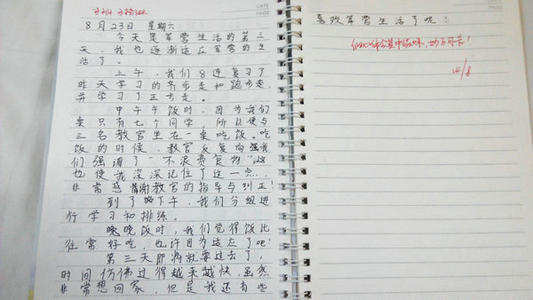 8月23日 星期六
今天是军营生活的第三
天，我也逐渐适应军营的生
活了。
上午，我们8连复习了
昨天学习的齐步走和跑步走，
并学习了正步走。
中午午饭时，因为我们
桌只有七个同学，所以便与
三名教官坐在一桌吃饭。吃
饭的时候，教官反复向我
们强调了"不浪费食物"，这
也使我深深记住了这一点，
非常感谢教官的指导与纠正！
到了下午，我们分组进
行学习和排练。
晚饭时，我们觉得饭比
往常好吃，也许因为适应了吧！
第三天即将就要过去了，
时间仿佛过得越来越快，虽然
非常想回家，但是我还有些
喜欢军营生活了呢！